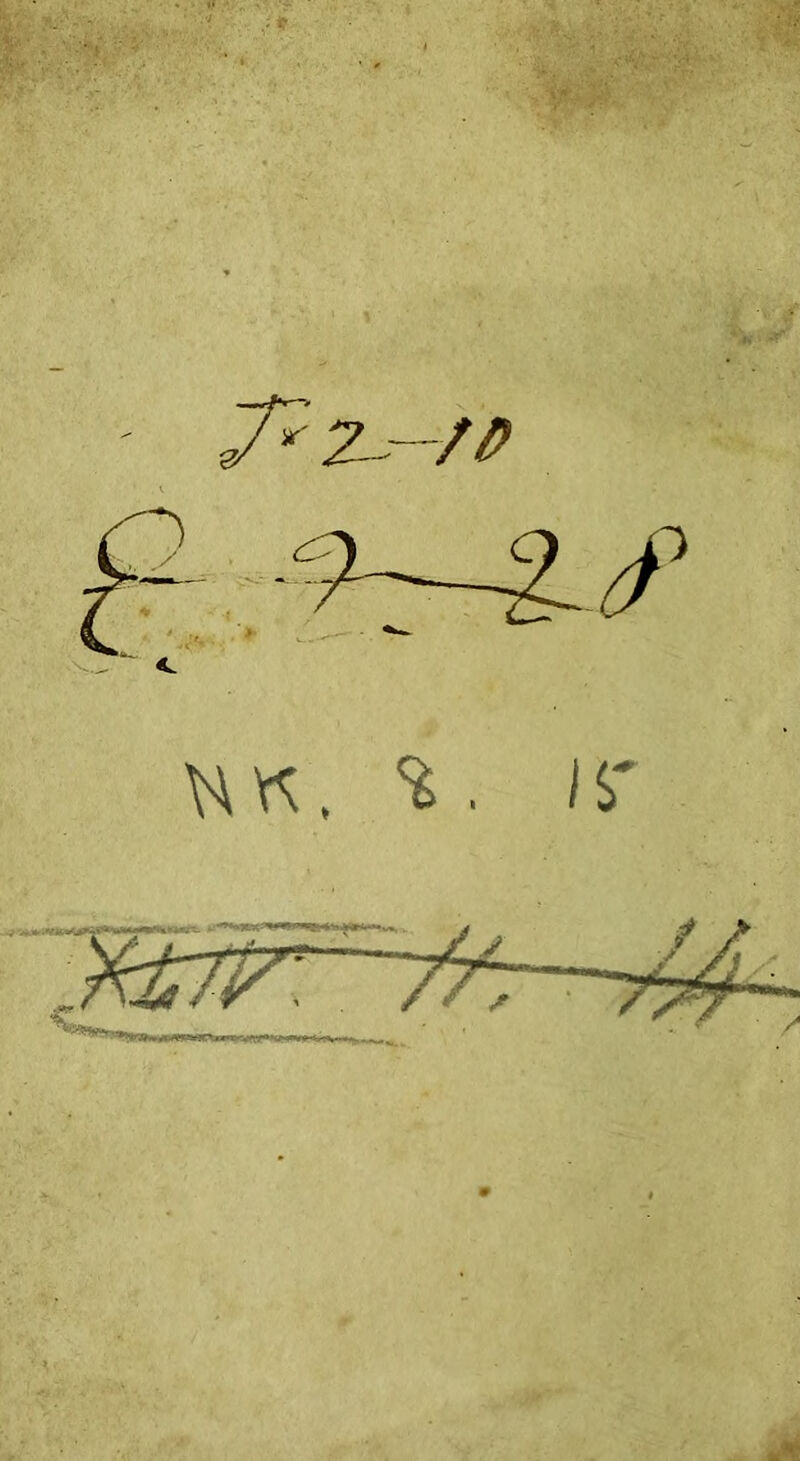 J* 2–10
E. 2. 28
NK. 8. 15
XLIV. 11. 14